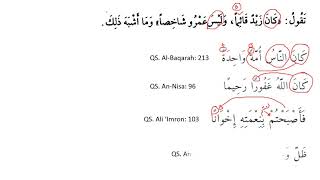 تَقُولُ: «كَانَ زَيْدٌ قَائِمًا، وَلَيْسَ عَمْرٌو شَاخِصاً» وَمَا أَشْبَهَ ذَلِكَ.
كَانَ النَّاسُ أُمَّةً وَاحِدَةً
QS. Al-Baqarah: 213
كَانَ اللَّهُ غَفُورًا رَحِيمًا
QS. An-Nisa: 96
فَأَصْبَحْتُمْ بِنِعْمَتِهِ إِخْوَانًا
QS. Ali 'Imron: 103
ظَلَّ وَ
QS. An